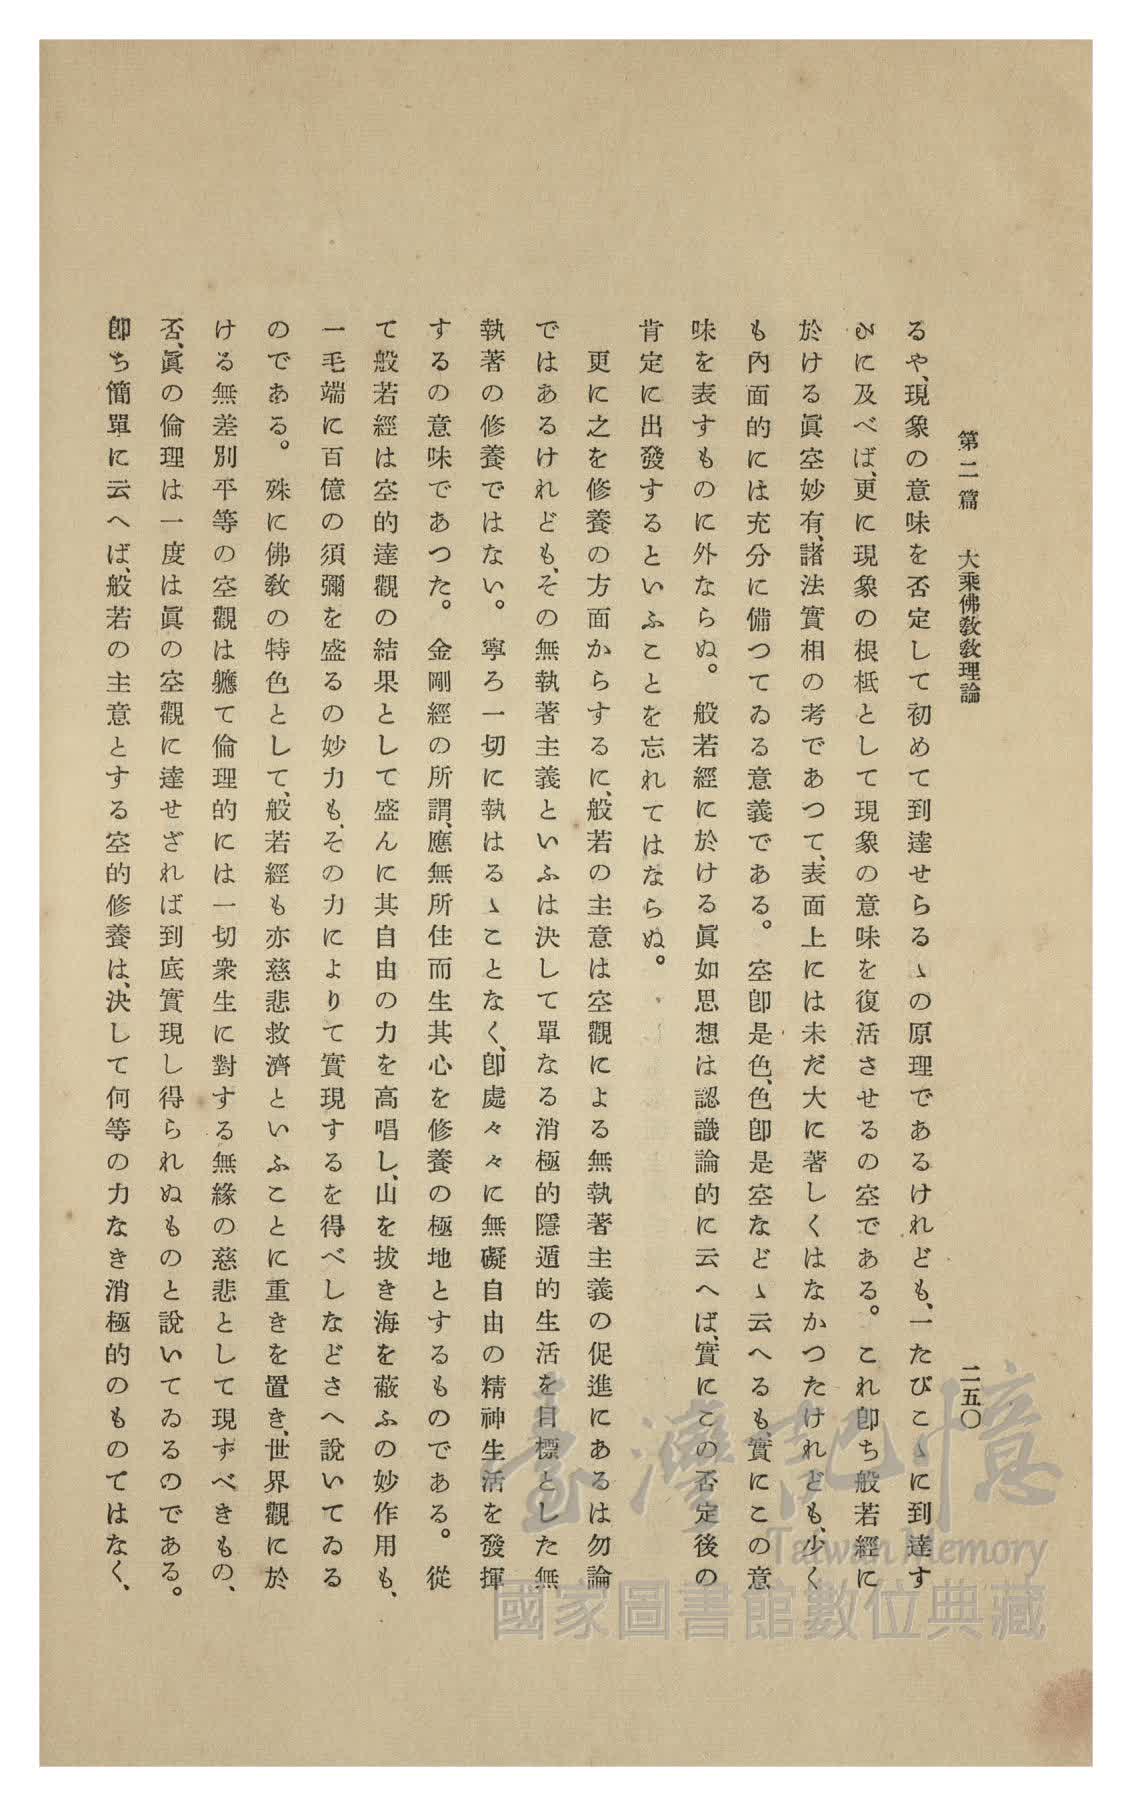 第二篇　大乘佛敎敎理論
二五〇
るや、現象の意味を否定して初めて到達せらるゝの原理であるけれども、一たびこゝに到達す
るに及べば、更に現象の根柢として現象の意味を復活させるの空である。これ卽ち般若經に
於ける眞空妙有、諸法實相の考であつて、表面上には未だ大に著しくはなかつたけれども、少く
も內面的には充分に備つてゐる意義である。空卽是色、色卽是空などゝ云へるも、實にこの意
味を表すものに外ならぬ。般若經に於ける眞如思想は認識論的に云へば、實にこの否定後の
肯定に出發するといふことを忘れてはならぬ。
更に之を修養の方面からするに、般若の主意は空觀による無執著主義の促進にあるは勿論
ではあるけれども、その無執著主義といふは決して單なる消極的隱遁的生活を目標とした無
執著の修養ではない。寧ろ一切に執はるゝことなく、卽處々々に無礙自由の精神生活を發揮
するの意味であつた。金剛經の所謂、應無所住而生其心を修養の極地とするものである。從
て般若經は空的達觀の結果として盛んに其自由の力を高唱し、山を拔き海を蔽ふの妙作用も、
一毛端に百億の須彌を盛るの妙力も、その力によりて實現するを得べしなどさへ說いてゐる
のである。殊に佛敎の特色として、般若經も亦慈悲救濟といふことに重きを置き、世界觀に於
ける無差別平等の空觀は軈て倫理的には一切衆生に對する無緣の慈悲として現ずべきもの、
否、眞の倫理は一度は眞の空觀に達せざれば到底實現し得られぬものと說いてゐるのである。
卽ち簡單に云へば、般若の主意とする空的修養は、決して何等の力なき消極的のものてはなく、
臺灣記憶
Taiwan Memory
國家圖書館數位典藏